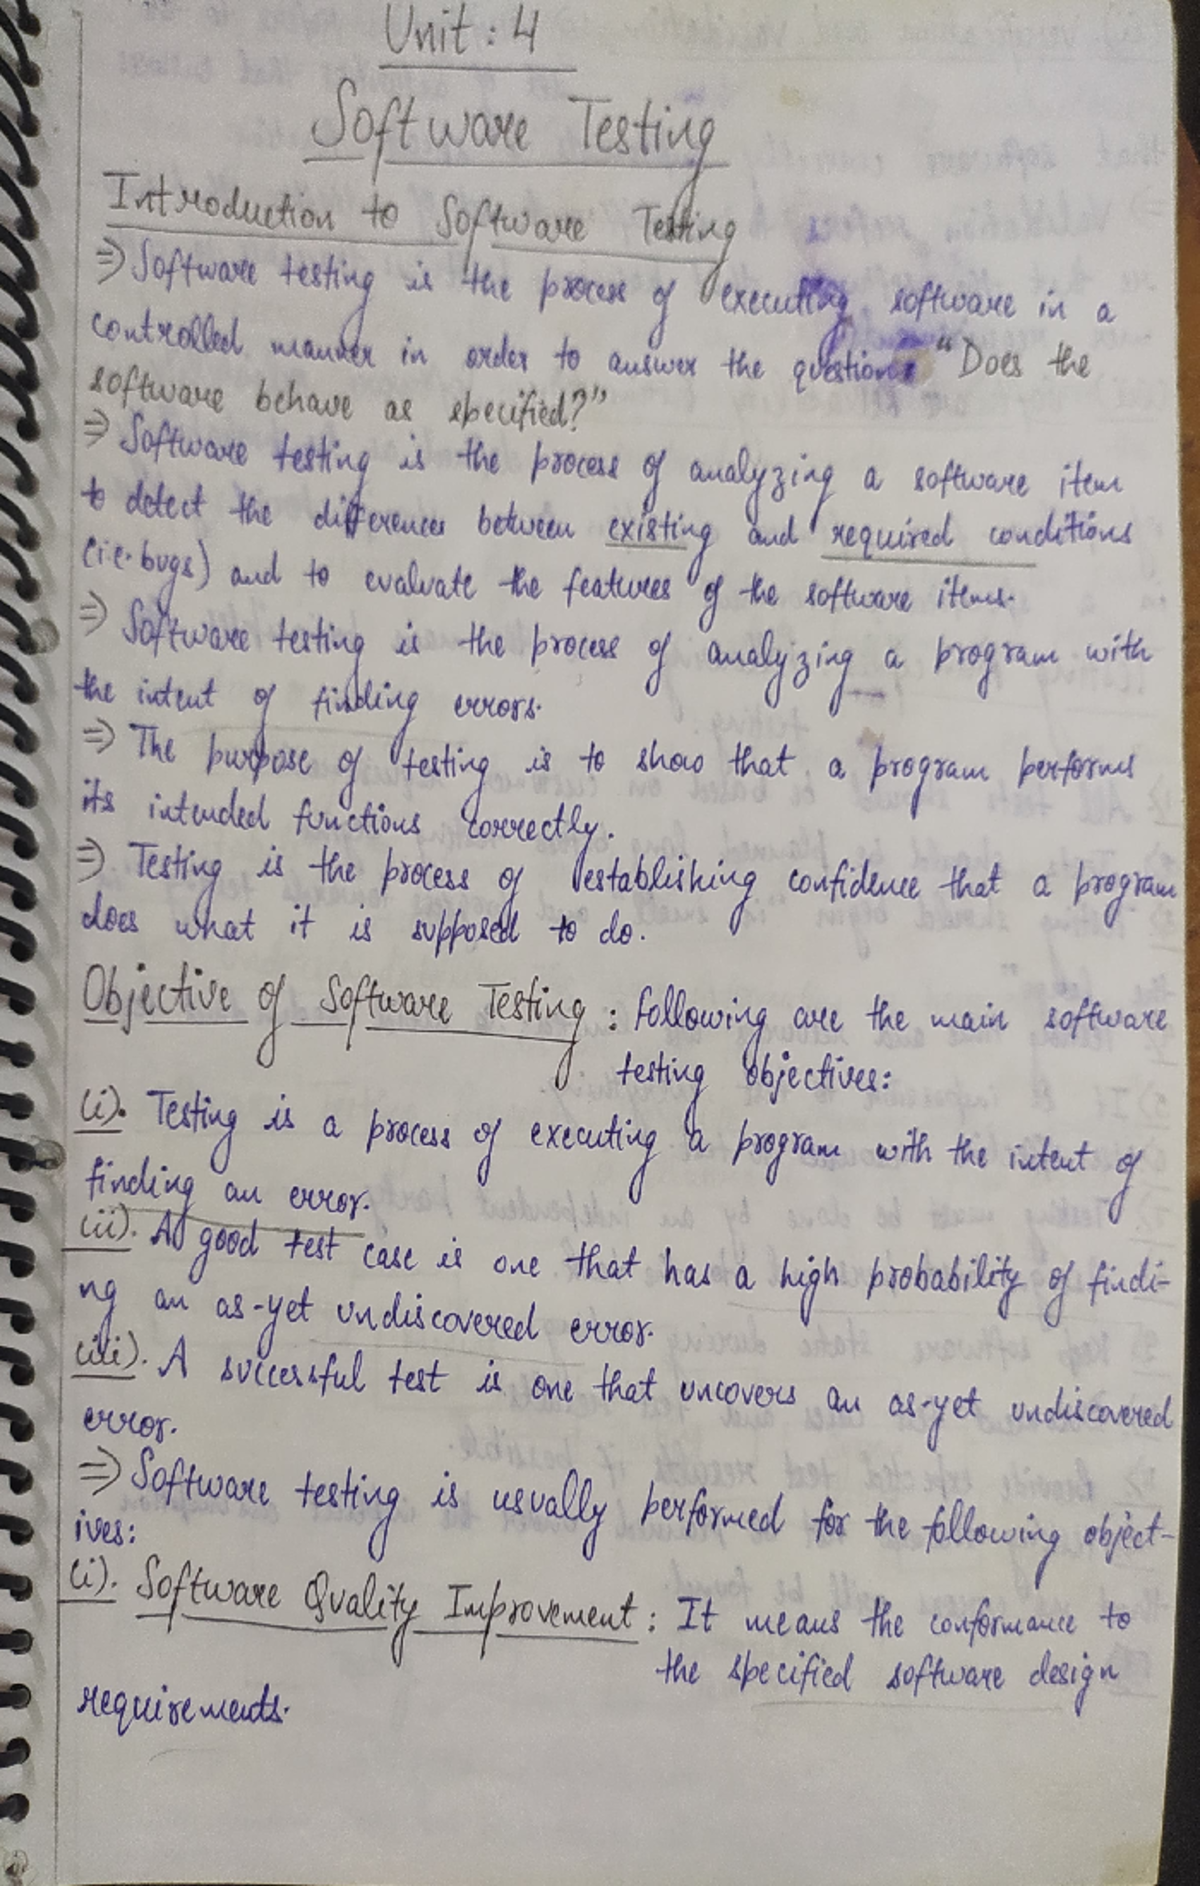 Unit : 4
Software Testing
Introduction to Software Testing
⇒ Software testing is the process of executing software in a
controlled manner in order to answer the question: "Does the
software behave as specified?"
⇒ Software testing is the process of analyzing a software item
to detect the differences between existing and required conditions
(i.e. bugs) and to evaluate the features of the software items.
⇒ Software testing is the process of analyzing a program with
the intent of finding errors.
⇒ The purpose of testing is to show that a program performs
its intended functions correctly.
⇒ Testing is the process of establishing confidence that a program
does what it is supposed to do.
Objective of Software Testing : Following are the main software
testing objectives:
(i). Testing is a process of executing a program with the intent of
finding an error.
(ii). A good test case is one that has a high probability of findi-
ng an as-yet undiscovered error.
(iii). A successful test is one that uncovers an as-yet undiscovered
error.
⇒ Software testing is usually performed for the following object-
ives:
(i). Software Quality Improvement : It means the conformance to
the specified software design
requirements.